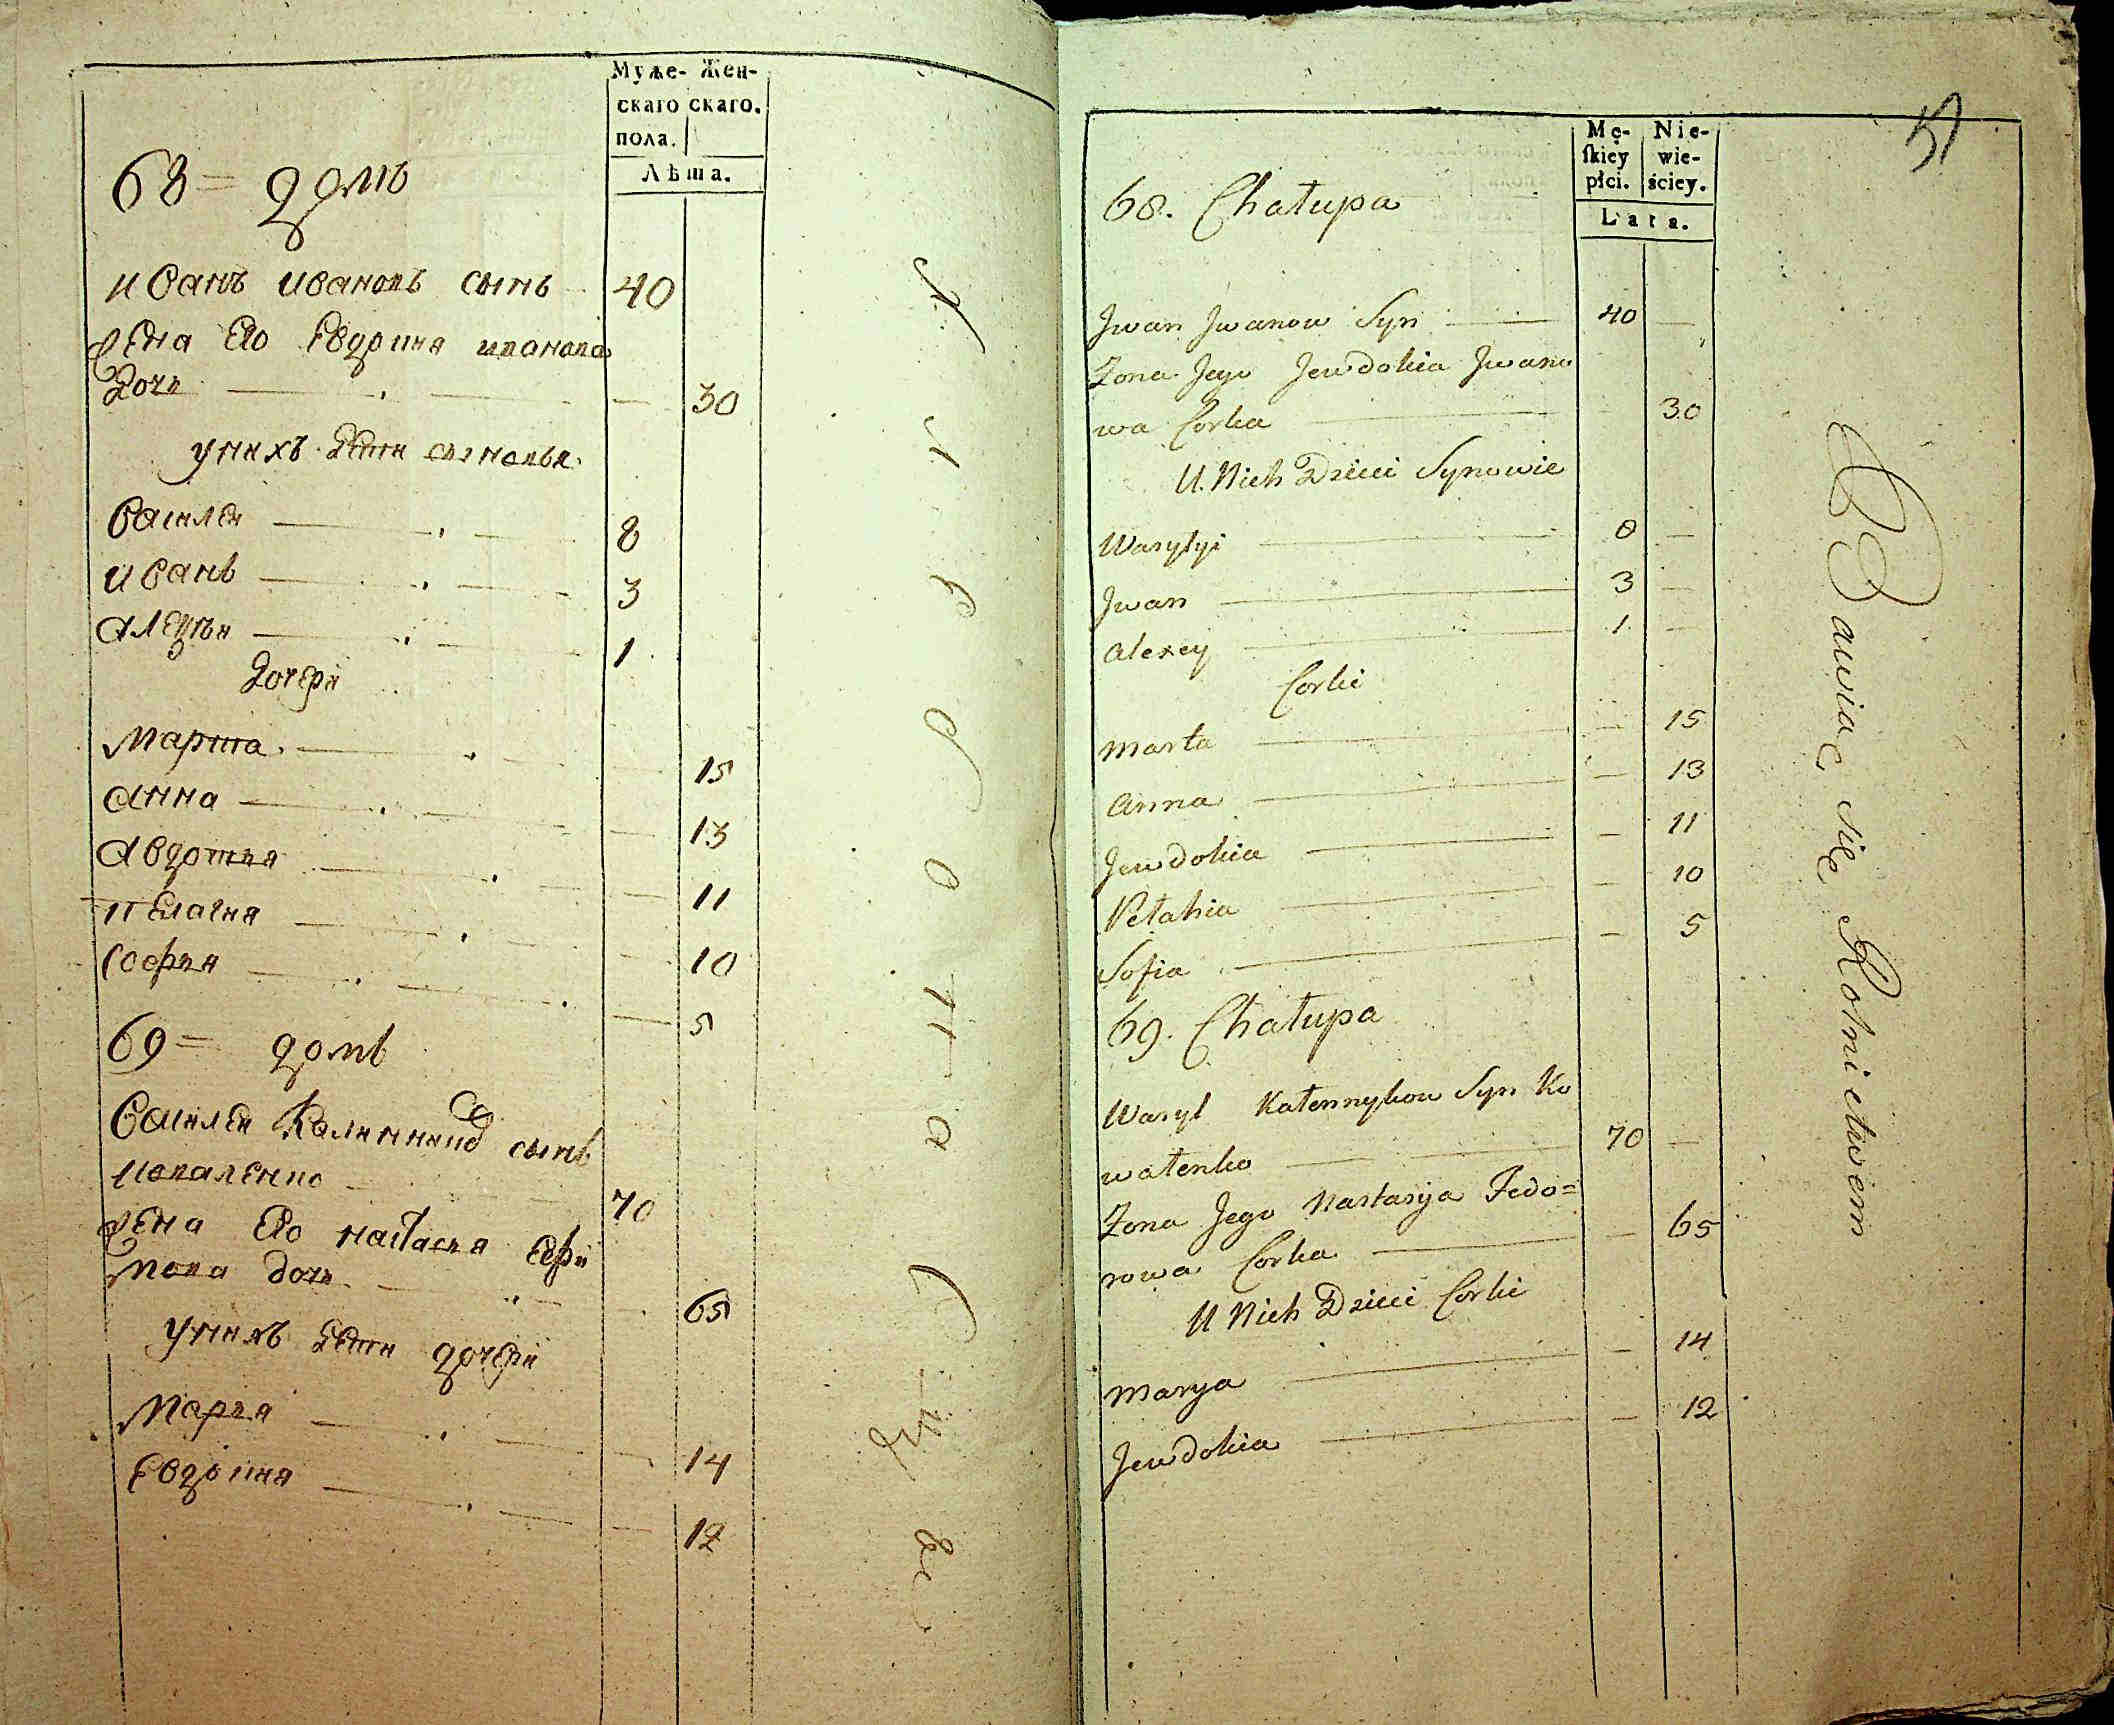 Муже- Жен-
скаго скаго.
пола.
Лѣта.
68 = домъ
Иванъ ивановъ сынъ 40
жена Его Евдокия иванова
дочь 30
у нихъ дети сыновья
Василей 8
Иванъ 3
Алецѣи 1
дочери
Марта 15
Анна 13
Авдотья 11
Пелагия 10
Софья 5
69 = домъ
Василей сынъ
Коваленко 70
жена Его настасья
дочь 65
у нихъ дети дочери
Марья 14
Евдокия 12
51
Mę- Nie-
skiey wie-
płci. ściey.
Lata.
68. Chałupa
Jwan Jwanow Syn 40 —
Zona Jego Jewdokia Jwano
wa Corka 30
U Nich Dzieci Synowie
Wasylyi 8 —
Jwan 3 —
Alexey 1 —
Corki
Marta — 15
Anna — 13
Jewdokia — 11
Pełahia — 10
Sofia — 5
69. Chałupa
Wasyl Kałennykow Syn Ko
wałenko 70 —
Zona Jego Nastasya Fedo=
rowa Corka — 65
U Nich Dzieci Corki
Marya — 14
Jewdokia — 12
Bawiąc się Rolnictwem